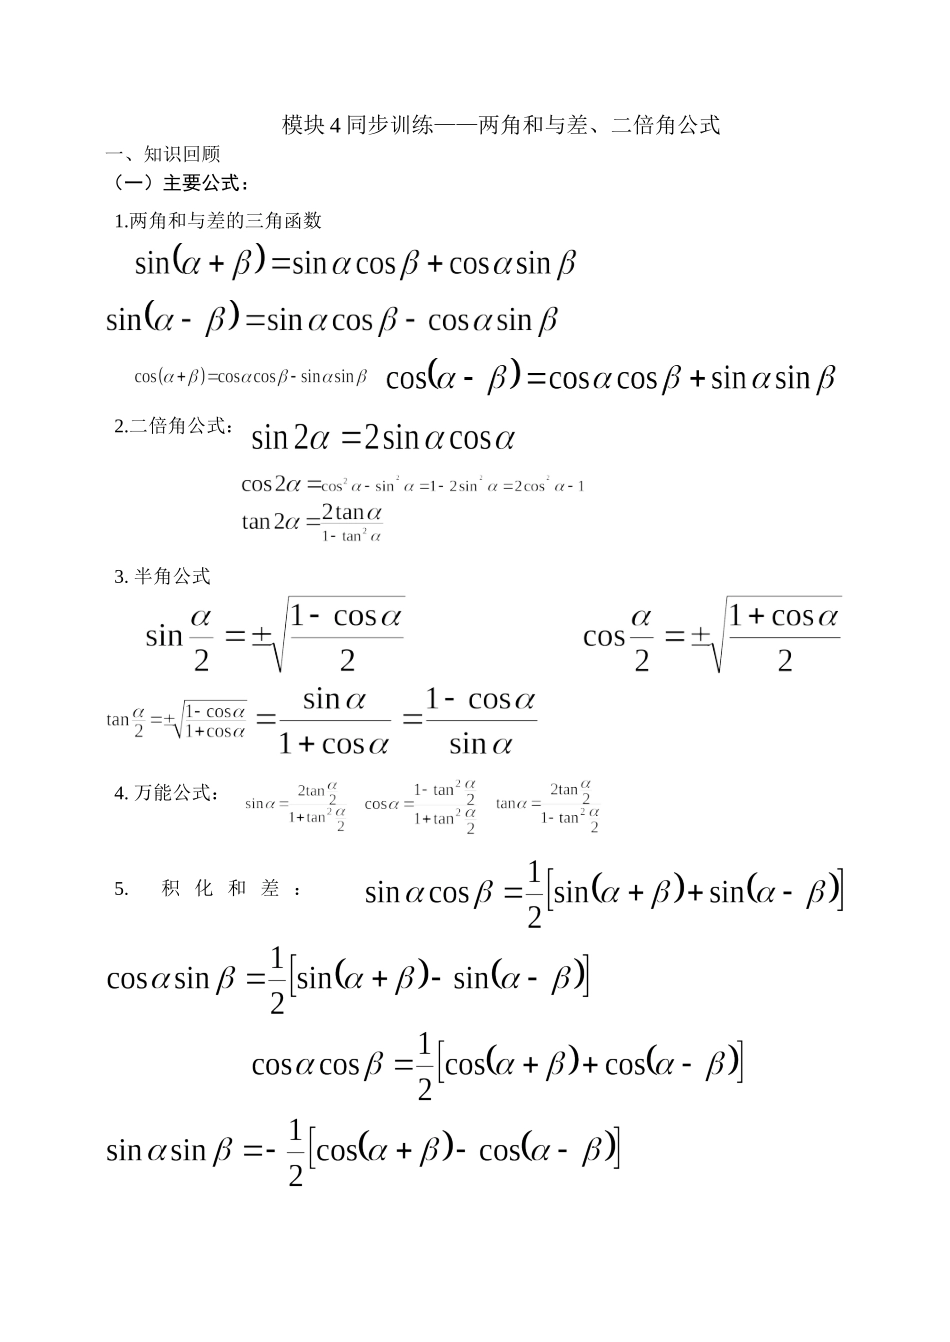 模块 4 同步训练——两角和与差、二倍角公式
一、知识回顾
（一）主要公式：
1.两角和与差的三角函数
sin(α+β)=sinαcosβ+cosαsinβ
sin(α−β)=sinαcosβ−cosαsinβ
cos(α+β)=cosαcosβ−sinαsinβ cos(α−β)=cosαcosβ+sinαsinβ
2.二倍角公式：sin2α=2sinαcosα
cos2α=cos²α−sin²α=1−2sin²α=2cos²α−1
tan2α=\frac{2tanα}{1−tan²α}
3. 半角公式
sin\frac{α}{2}=±\sqrt{\frac{1−cosα}{2}} cos\frac{α}{2}=±\sqrt{\frac{1+cosα}{2}}
tan\frac{α}{2}=±\sqrt{\frac{1−cosα}{1+cosα}}=\frac{sinα}{1+cosα}=\frac{1−cosα}{sinα}
4. 万能公式：sinα=\frac{2tan\frac{α}{2}}{1+tan²\frac{α}{2}} cosα=\frac{1−tan²\frac{α}{2}}{1+tan²\frac{α}{2}} tanα=\frac{2tan\frac{α}{2}}{1−tan²\frac{α}{2}}
5. 积化和差：sinαcosβ=\frac{1}{2}[sin(α+β)+sin(α−β)]
cosαsinβ=\frac{1}{2}[sin(α+β)−sin(α−β)]
cosαcosβ=\frac{1}{2}[cos(α+β)+cos(α−β)]
sinαsinβ=−\frac{1}{2}[cos(α+β)−cos(α−β)]